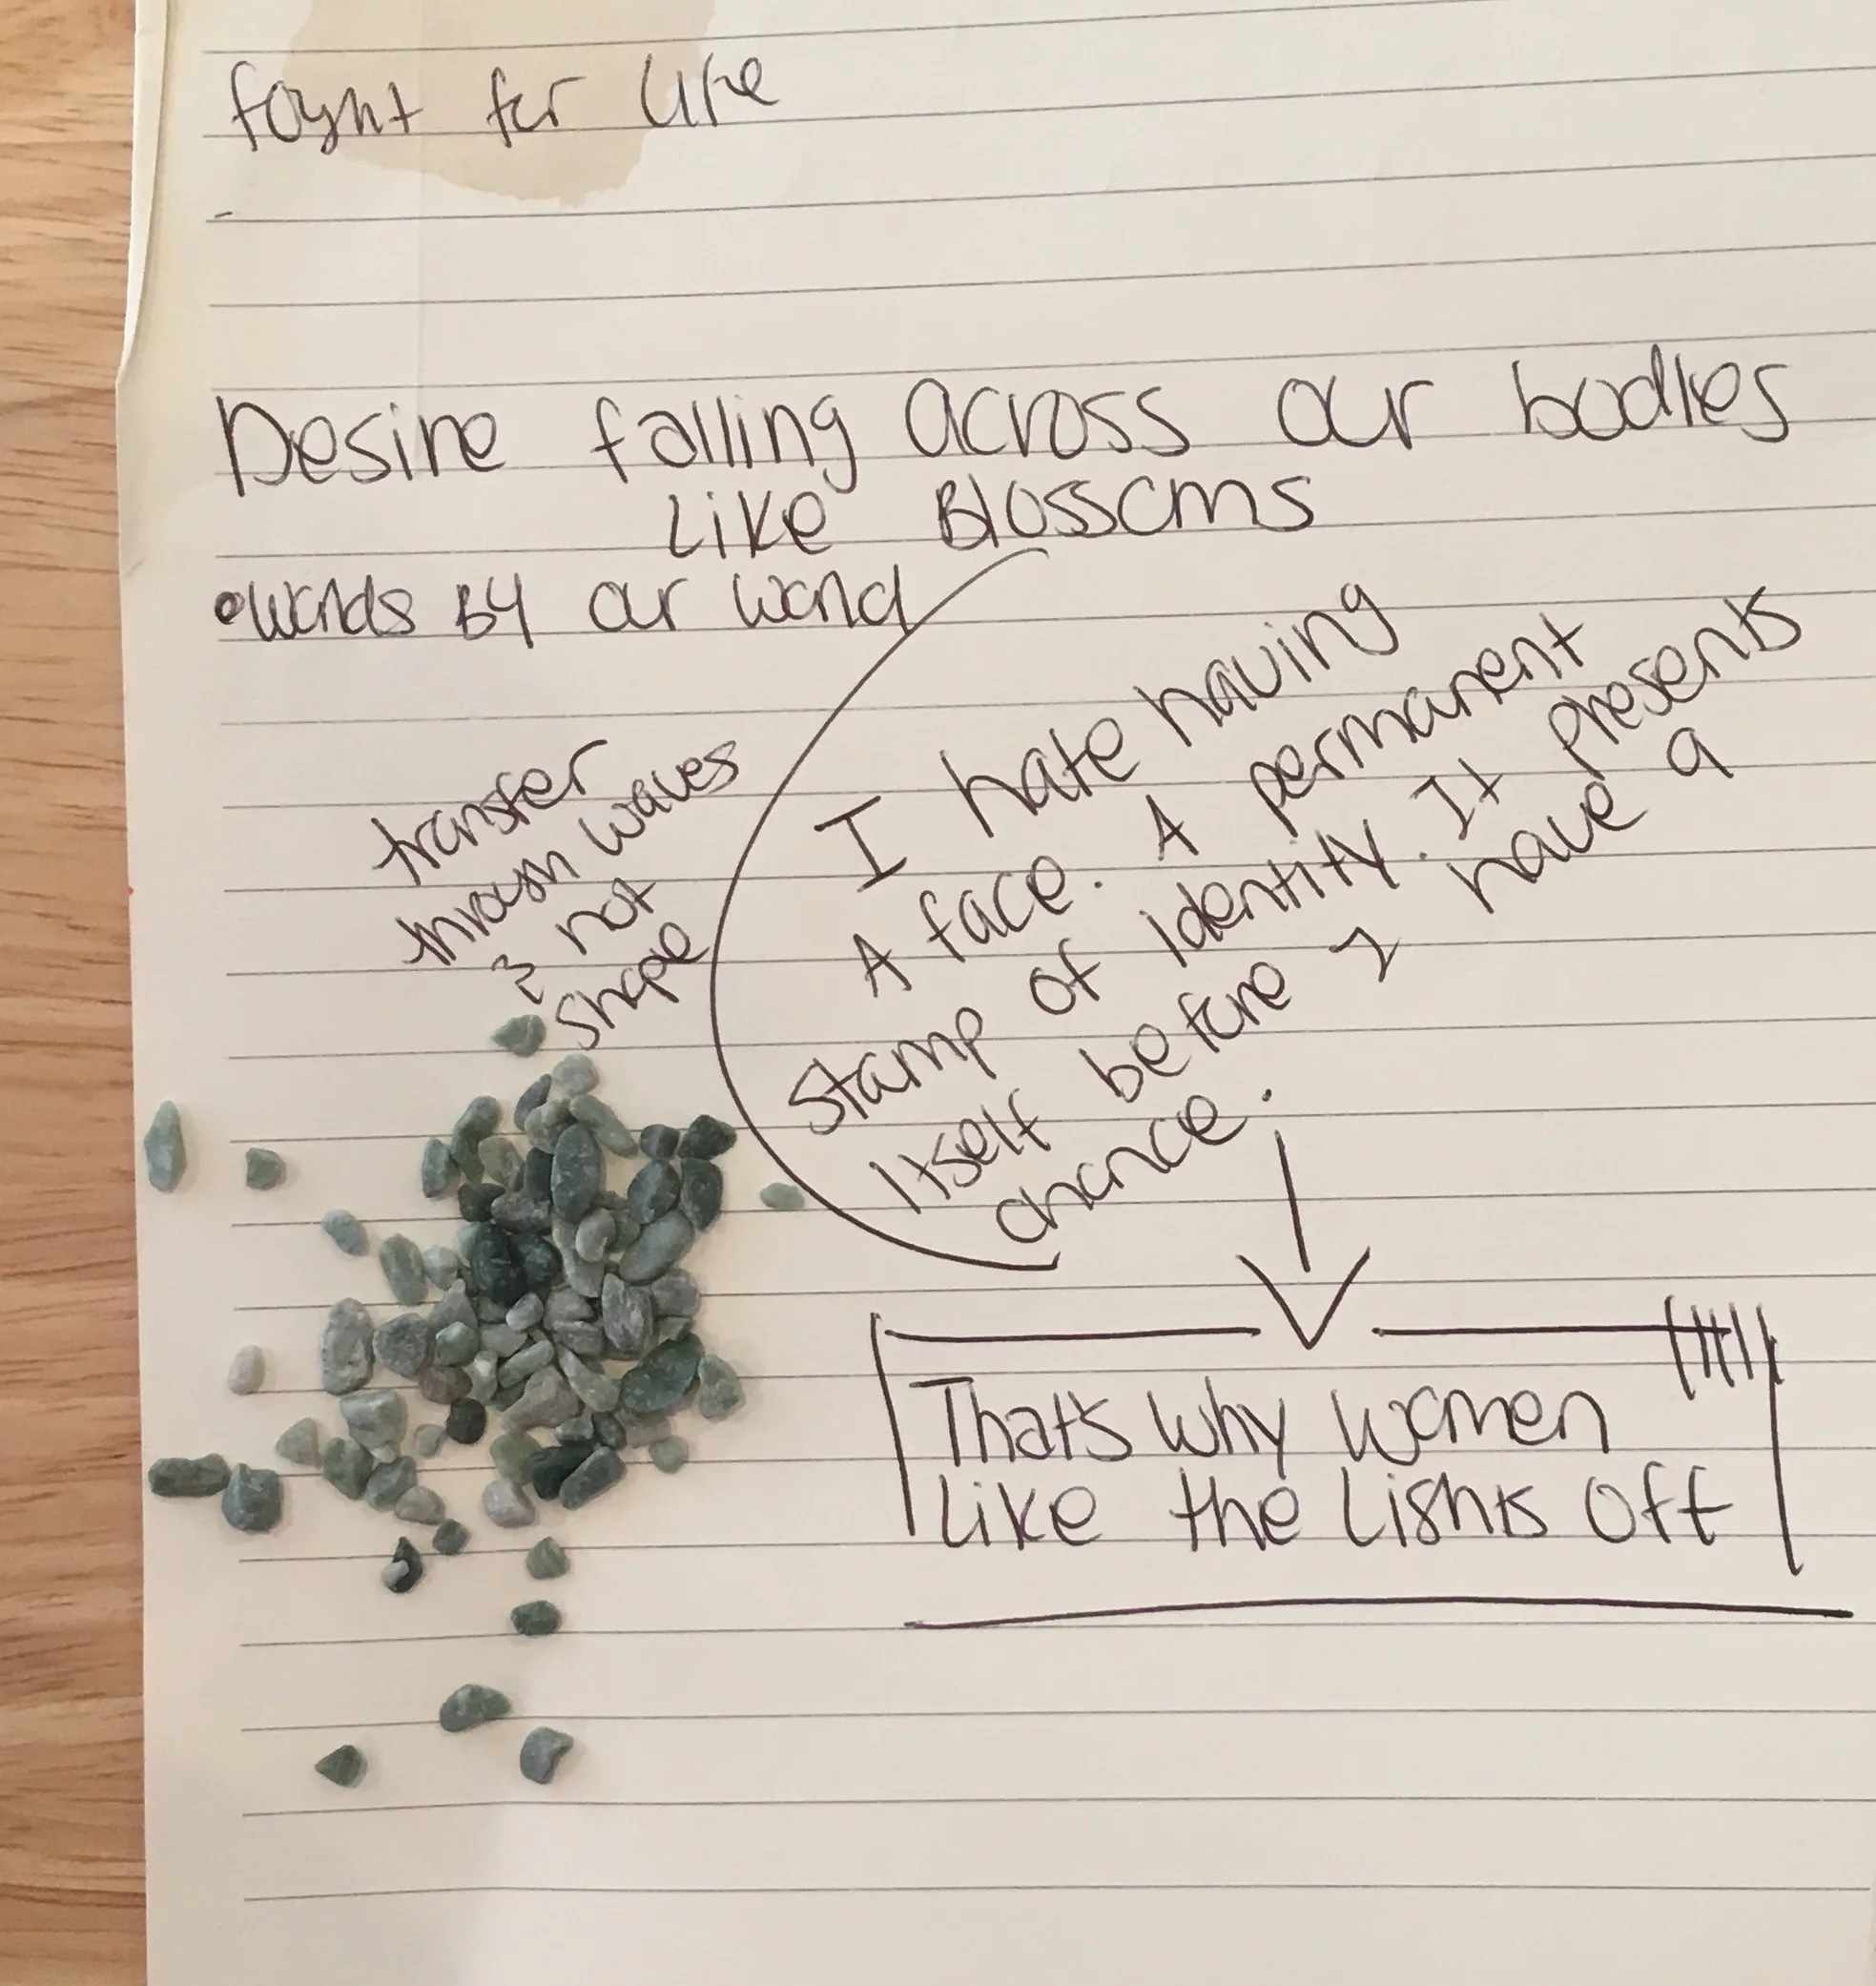 fought for life
Desire falling across our bodies
Like Blossoms
words By our word
transfer
through waves
& not
shape
I hate having
A face. A permanent
Stamp of identity. It presents
itself before I have a
chance.
That's why women
Like the Lights Off